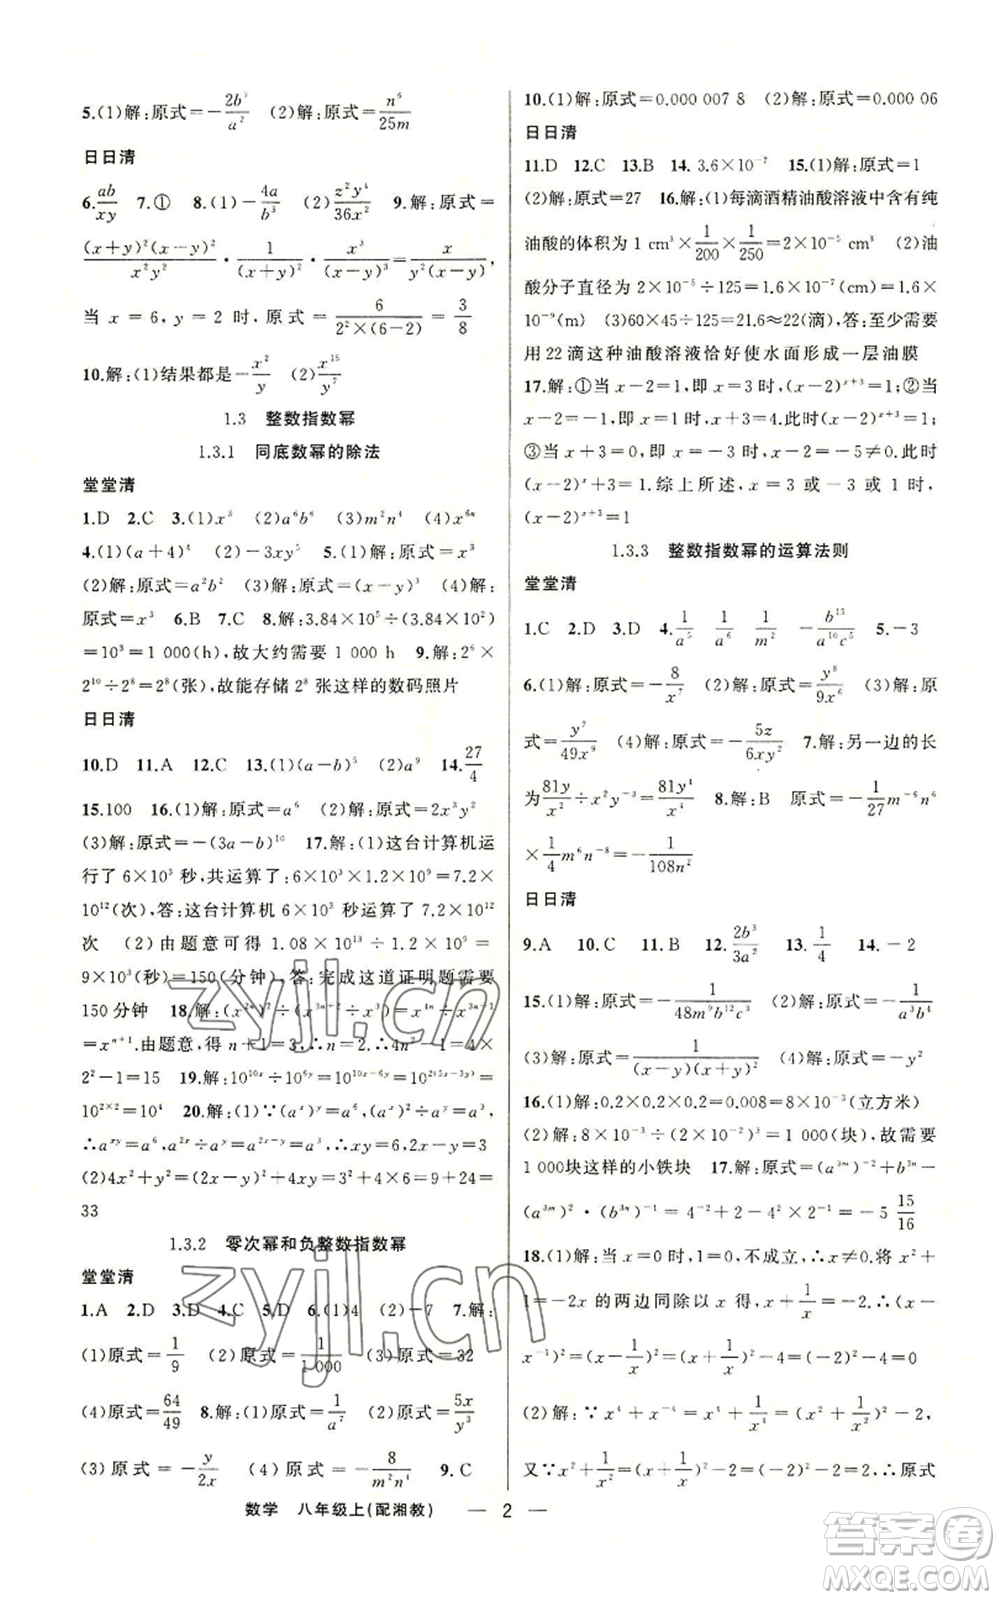 5.(1)解:原式=-2b³/a² (2)解:原式=n⁶/25m
日日清
6.ab/xy 7.① 8.(1)-4a/b³ (2)z²y⁴/36x² 9.解:原式=
(x+y)²(x-y)²/x²y² · 1/(x+y)² · x³/(x-y)³ = x/y²(x-y),
当 x=6,y=2 时,原式=6/2²×(6-2)=3/8
10.解:(1)结果都是-x²/y (2)x¹⁵/y⁷
1.3 整数指数幂
1.3.1 同底数幂的除法
堂堂清
1.D 2.C 3.(1)x³ (2)a⁶b⁶ (3)m²n⁴ (4)x⁶ⁿ
4.(1)(a+4)⁴ (2)-3xy⁵ 5.(1)解:原式=a⁶
(2)解:原式=a²b² (3)解:原式=(x-y)³ (4)解:
原式=x³ 6.B 7.C 8.解:3.84×10⁵÷(3.84×10²)
=10³=1 000(h),故大约需要 1 000 h 9.解:2⁶×
2¹⁰÷2⁸=2⁸(张),故能存储 2⁸ 张这样的数码照片
日日清
10.D 11.A 12.C 13.(1)(a-b)⁵ (2)a⁹ 14.27/4
15.100 16.(1)解:原式=a⁶ (2)解:原式=2x³y²
(3)解:原式=-(3a-b)¹⁰ 17.解:(1)这台计算机运
行了 6×10³ 秒,共运算了 6×10³×1.2×10⁹=7.2×
10¹²(次),答:这台计算机 6×10³ 秒运算了 7.2×10¹²
次 (2)由题意可得 1.08×10¹³÷(1.2×10⁹)=
9×10³(秒)=150(分钟),答:完成这道证明题需要
150 分钟 18.解:(x²ⁿ)²÷(x³ⁿ⁺²÷x³)=x⁴ⁿ÷x³ⁿ⁻¹
=xⁿ⁺¹.由题意,得 n+1=3,解得 n=2,∴4n²-1=4×
2²-1=15 19.解:10¹⁰ˣ÷10⁶ʸ=10¹⁰ˣ⁻⁶ʸ=10²⁽⁵ˣ⁻³ʸ⁾=
10²ˣ²=10⁴ 20.解:(1)∵(aˣ)ʸ=a⁶,(aˣ)²÷aʸ=a³,
∴aˣʸ=a⁶,a²ˣ÷aʸ=a²ˣ⁻ʸ=a³,∴xy=6,2x-y=3
(2)4x²+y²=(2x-y)²+4xy=3²+4×6=9+24=
33
1.3.2 零次幂和负整数指数幂
堂堂清
1.A 2.D 3.D 4.C 5.D 6.(1)4 (2)-7 7.解:
(1)原式=1/9 (2)原式=1/1 000 (3)原式=32
(4)原式=64/49 8.解:(1)原式=1/a⁷ (2)原式=5x/y³
(3)原式=-y/2x (4)原式=-8/m²n⁴ 9.C
10.(1)解:原式=0.000 007 8 (2)解:原式=0.000 06
日日清
11.D 12.C 13.B 14.3.6×10⁻⁷ 15.(1)解:原式=1
(2)解:原式=27 16.解:(1)每滴酒精油酸溶液中含有纯
油酸的体积为 1 cm³×1/200×1/250=2×10⁻⁵(cm³) (2)油
酸分子直径为 2×10⁻⁵÷125=1.6×10⁻⁷(cm)=1.6×
10⁻⁹(m) (3)60×45÷125=21.6≈22(滴),答:至少需要
用 22 滴这种油酸溶液恰好使水面形成一层油膜
17.解:①当 x-2=1,即 x=3 时,(x-2)ˣ⁺³=1;②当
x-2=-1,即 x=1 时,x+3=4.此时(x-2)ˣ⁺³=1;
③当 x+3=0,即 x=-3 时,x-2=-5≠0.此时
(x-2)ˣ+3=1.综上所述,x=3 或-3 或 1 时,
(x-2)ˣ⁺³=1
1.3.3 整数指数幂的运算法则
堂堂清
1.C 2.D 3.D 4.1/a⁵ 1/a⁶ 1/m² -b¹⁵/a¹⁰c⁵ 5.-3
6.(1)解:原式=-8/x⁷ (2)解:原式=y⁸/9x⁶ (3)解:原
式=y⁷/49x⁹ (4)解:原式=-5z/6xy² 7.解:另一边的长
为81y/x²÷x²y⁻³=81y⁴/x⁴ 8.解:B 原式=-1/27m⁻⁶n⁶
×1/4m⁶n⁻⁸=-1/108n²
日日清
9.A 10.C 11.B 12.2b³/3a² 13.1/4 14.-2
15.(1)解:原式=-1/48m⁹b¹²c³ (2)解:原式=-1/a³b⁴
(3)解:原式=1/(x-y)(x+y)² (4)解:原式=-y²
16.(1)解:0.2×0.2×0.2=0.008=8×10⁻³(立方米)
(2)解:8×10⁻³÷(2×10⁻²)³=1 000(块),故需要
1 000块这样的小铁块 17.解:原式=(a³ᵐ)⁻²+b³ᵐ-
(a³ᵐ)²·(b³ᵐ)²=4⁻²+2-4²×2⁻¹=-5 15/16
18.解:(1)当 x=0 时,左边=1≠0,∴x≠0.将 x²+
1=-2x 的两边同除以 x 得,x+1/x=-2.∴(x-
x⁻¹)²=(x-1/x)²=(x+1/x)²-4=(-2)²-4=0
(2)解:∵x⁴+x⁻⁴=x⁴+1/x⁴=(x²+1/x²)²-2,
又∵x²+1/x²=(x+1/x)²-2=(-2)²-2=2,∴原式
=2²-2=2
数学 八年级上(配湘教) — 2 —
zyjl.cn
zyjl.cn
答案圈
MXQE.COM